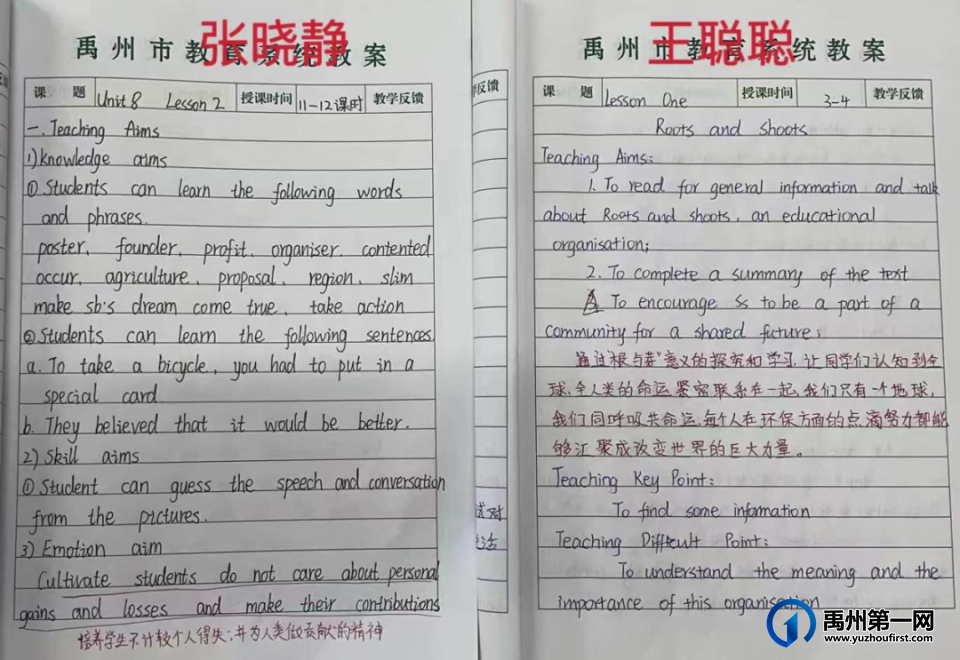 张晓静
禹州市教育系统教案
课 题 Unit 8 Lesson 2 授课时间 11-12课时 教学反馈
一. Teaching Aims
1) knowledge aims
① Students can learn the following words
and phrases.
poster, founder, profit, organiser, contented
occur, agriculture, proposal, region, slim
make sb's dream come true, take action
② Students can learn the following sentences.
a. To take a bicycle, you had to put in a
special card.
b. They believed that it would be better.
2) Skill aims
① Student can guess the speech and conversation
from the pictures.
3) Emotion aim
Cultivate students do not care about personal
gains and losses and make their contributions
培养学生不计较个人得失,并为人类做贡献的精神
学反馈
王聪聪
禹州市教育系统教案
课 题 Lesson One 授课时间 3-4 教学反馈
Roots and Shoots
Teaching Aims:
1. To read for general information and talk
about Roots and shoots, an educational
organisation;
2. To complete a summary of the text
To encourage Ss to be a part of a
community for a shared future;
通过"根与芽"意义的探究和学习,让同学们认知到全
球,全人类的命运紧密联系在一起,我们只有一个地球,
我们同呼吸共命运,每个人在环保方面的点滴努力都能
够汇聚成改变世界的巨大力量。
Teaching Key Point:
To find some information
Teaching Difficult Point:
To understand the meaning and the
importance of this organisation
禹州第一网
www.yuzhoufirst.com